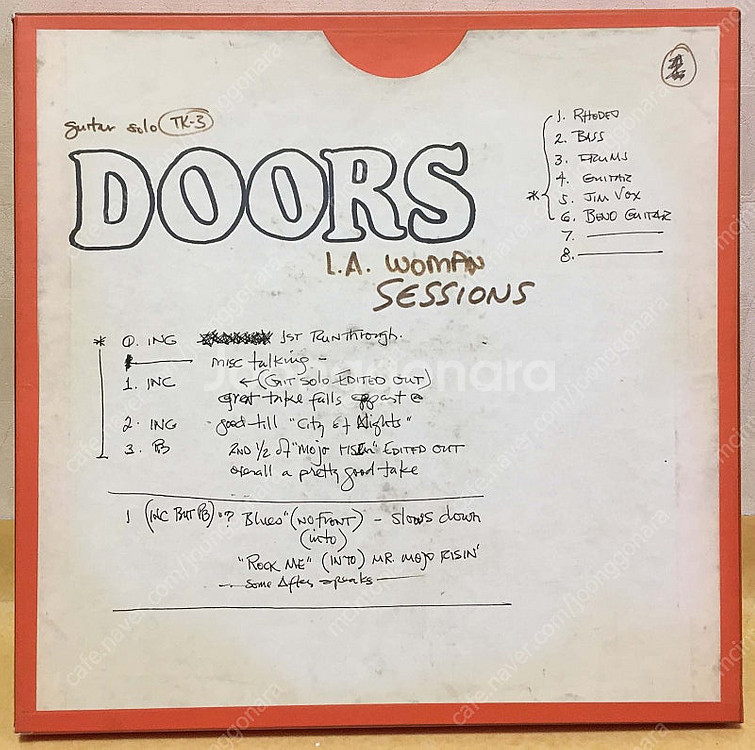 guitar solo TK-3
DOORS
L.A. WOMAN
SESSIONS
1. RHODES
2. BASS
3. DRUMS
4. GUITAR
5. JIM VOX
6. BENO GUITAR
7.
8.
* 0. INC 1ST Run through.
misc talking -
1. INC ← (GIT SOLO EDITED OUT)
great take falls apart @
2. INC good till "City of Nights"
3. PB 2ND 1/2 of "Mojo RISIN" EDITED OUT
overall a pretty good take
1 (INC BUT PB) "? Blues" (NO FRONT) - Slows down
(into)
"ROCK ME" (INTO) MR. MOJO RISIN'
- some After speaks -
joonggonara
cafe.naver.com/joonggonara